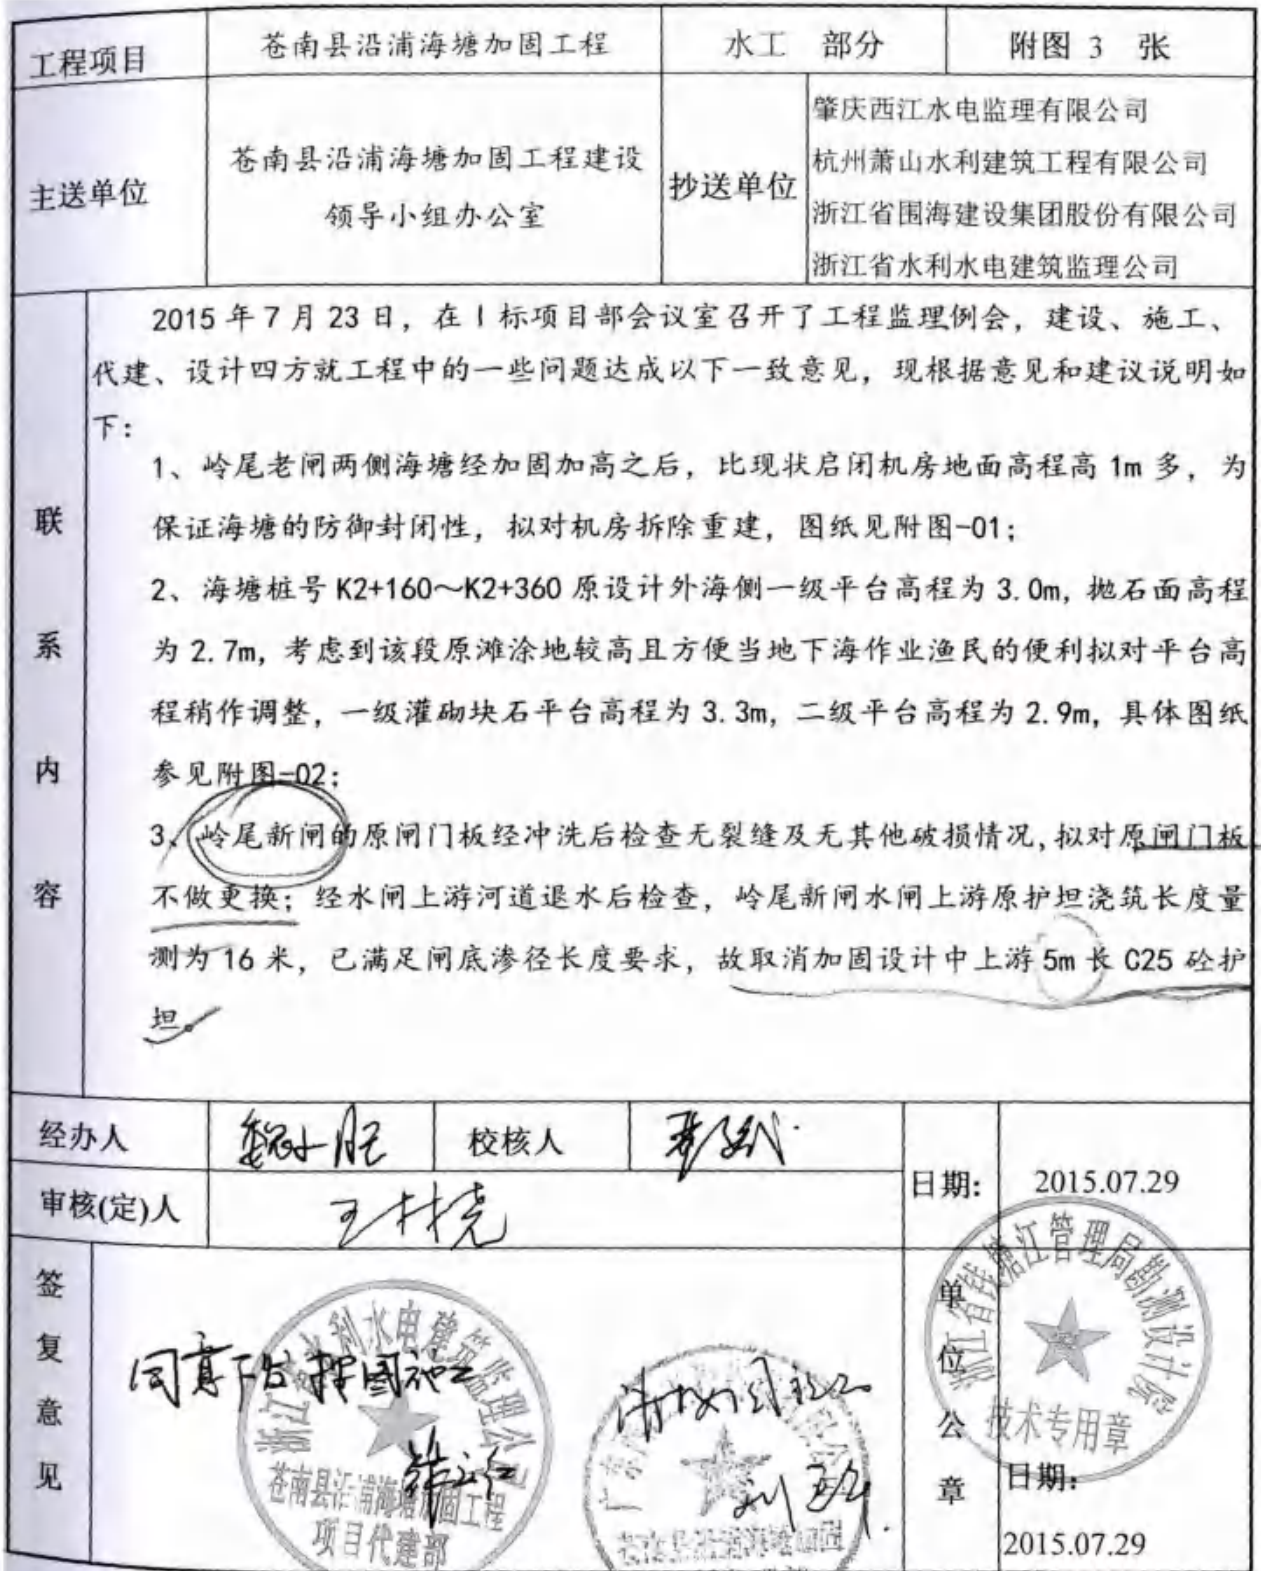 工程项目 苍南县沿浦海塘加固工程 水工 部分 附图 3 张
主送单位
苍南县沿浦海塘加固工程建设
领导小组办公室
抄送单位
肇庆西江水电监理有限公司
杭州萧山水利建筑工程有限公司
浙江省围海建设集团股份有限公司
浙江省水利水电建筑监理公司
联系内容
2015年7月23日，在Ⅰ标项目部会议室召开了工程监理例会，建设、施工、
代建、设计四方就工程中的一些问题达成以下一致意见，现根据意见和建议说明如
下：
1、岭尾老闸两侧海塘经加固加高之后，比现状启闭机房地面高程高1m多，为
保证海塘的防御封闭性，拟对机房拆除重建，图纸见附图-01；
2、海塘桩号K2+160～K2+360原设计外海侧一级平台高程为3.0m，抛石面高程
为2.7m，考虑到该段原滩涂地较高且方便当地下海作业渔民的便利拟对平台高
程稍作调整，一级灌砌块石平台高程为3.3m，二级平台高程为2.9m，具体图纸
参见附图-02；
3、岭尾新闸的原闸门板经冲洗后检查无裂缝及无其他破损情况，拟对原闸门板
不做更换；经水闸上游河道退水后检查，岭尾新闸水闸上游原护坦浇筑长度量
测为16米，已满足闸底渗径长度要求，故取消加固设计中上游5m长C25砼护
坦。
经办人 校核人
审核(定)人
日期: 2015.07.29
签复意见
同意下发按图施工
浙江省水利水电建筑监理公司
苍南县沿浦海塘加固工程
项目代建部
单位公章
浙江省钱塘江管理局勘测设计院
技术专用章
日期:
2015.07.29